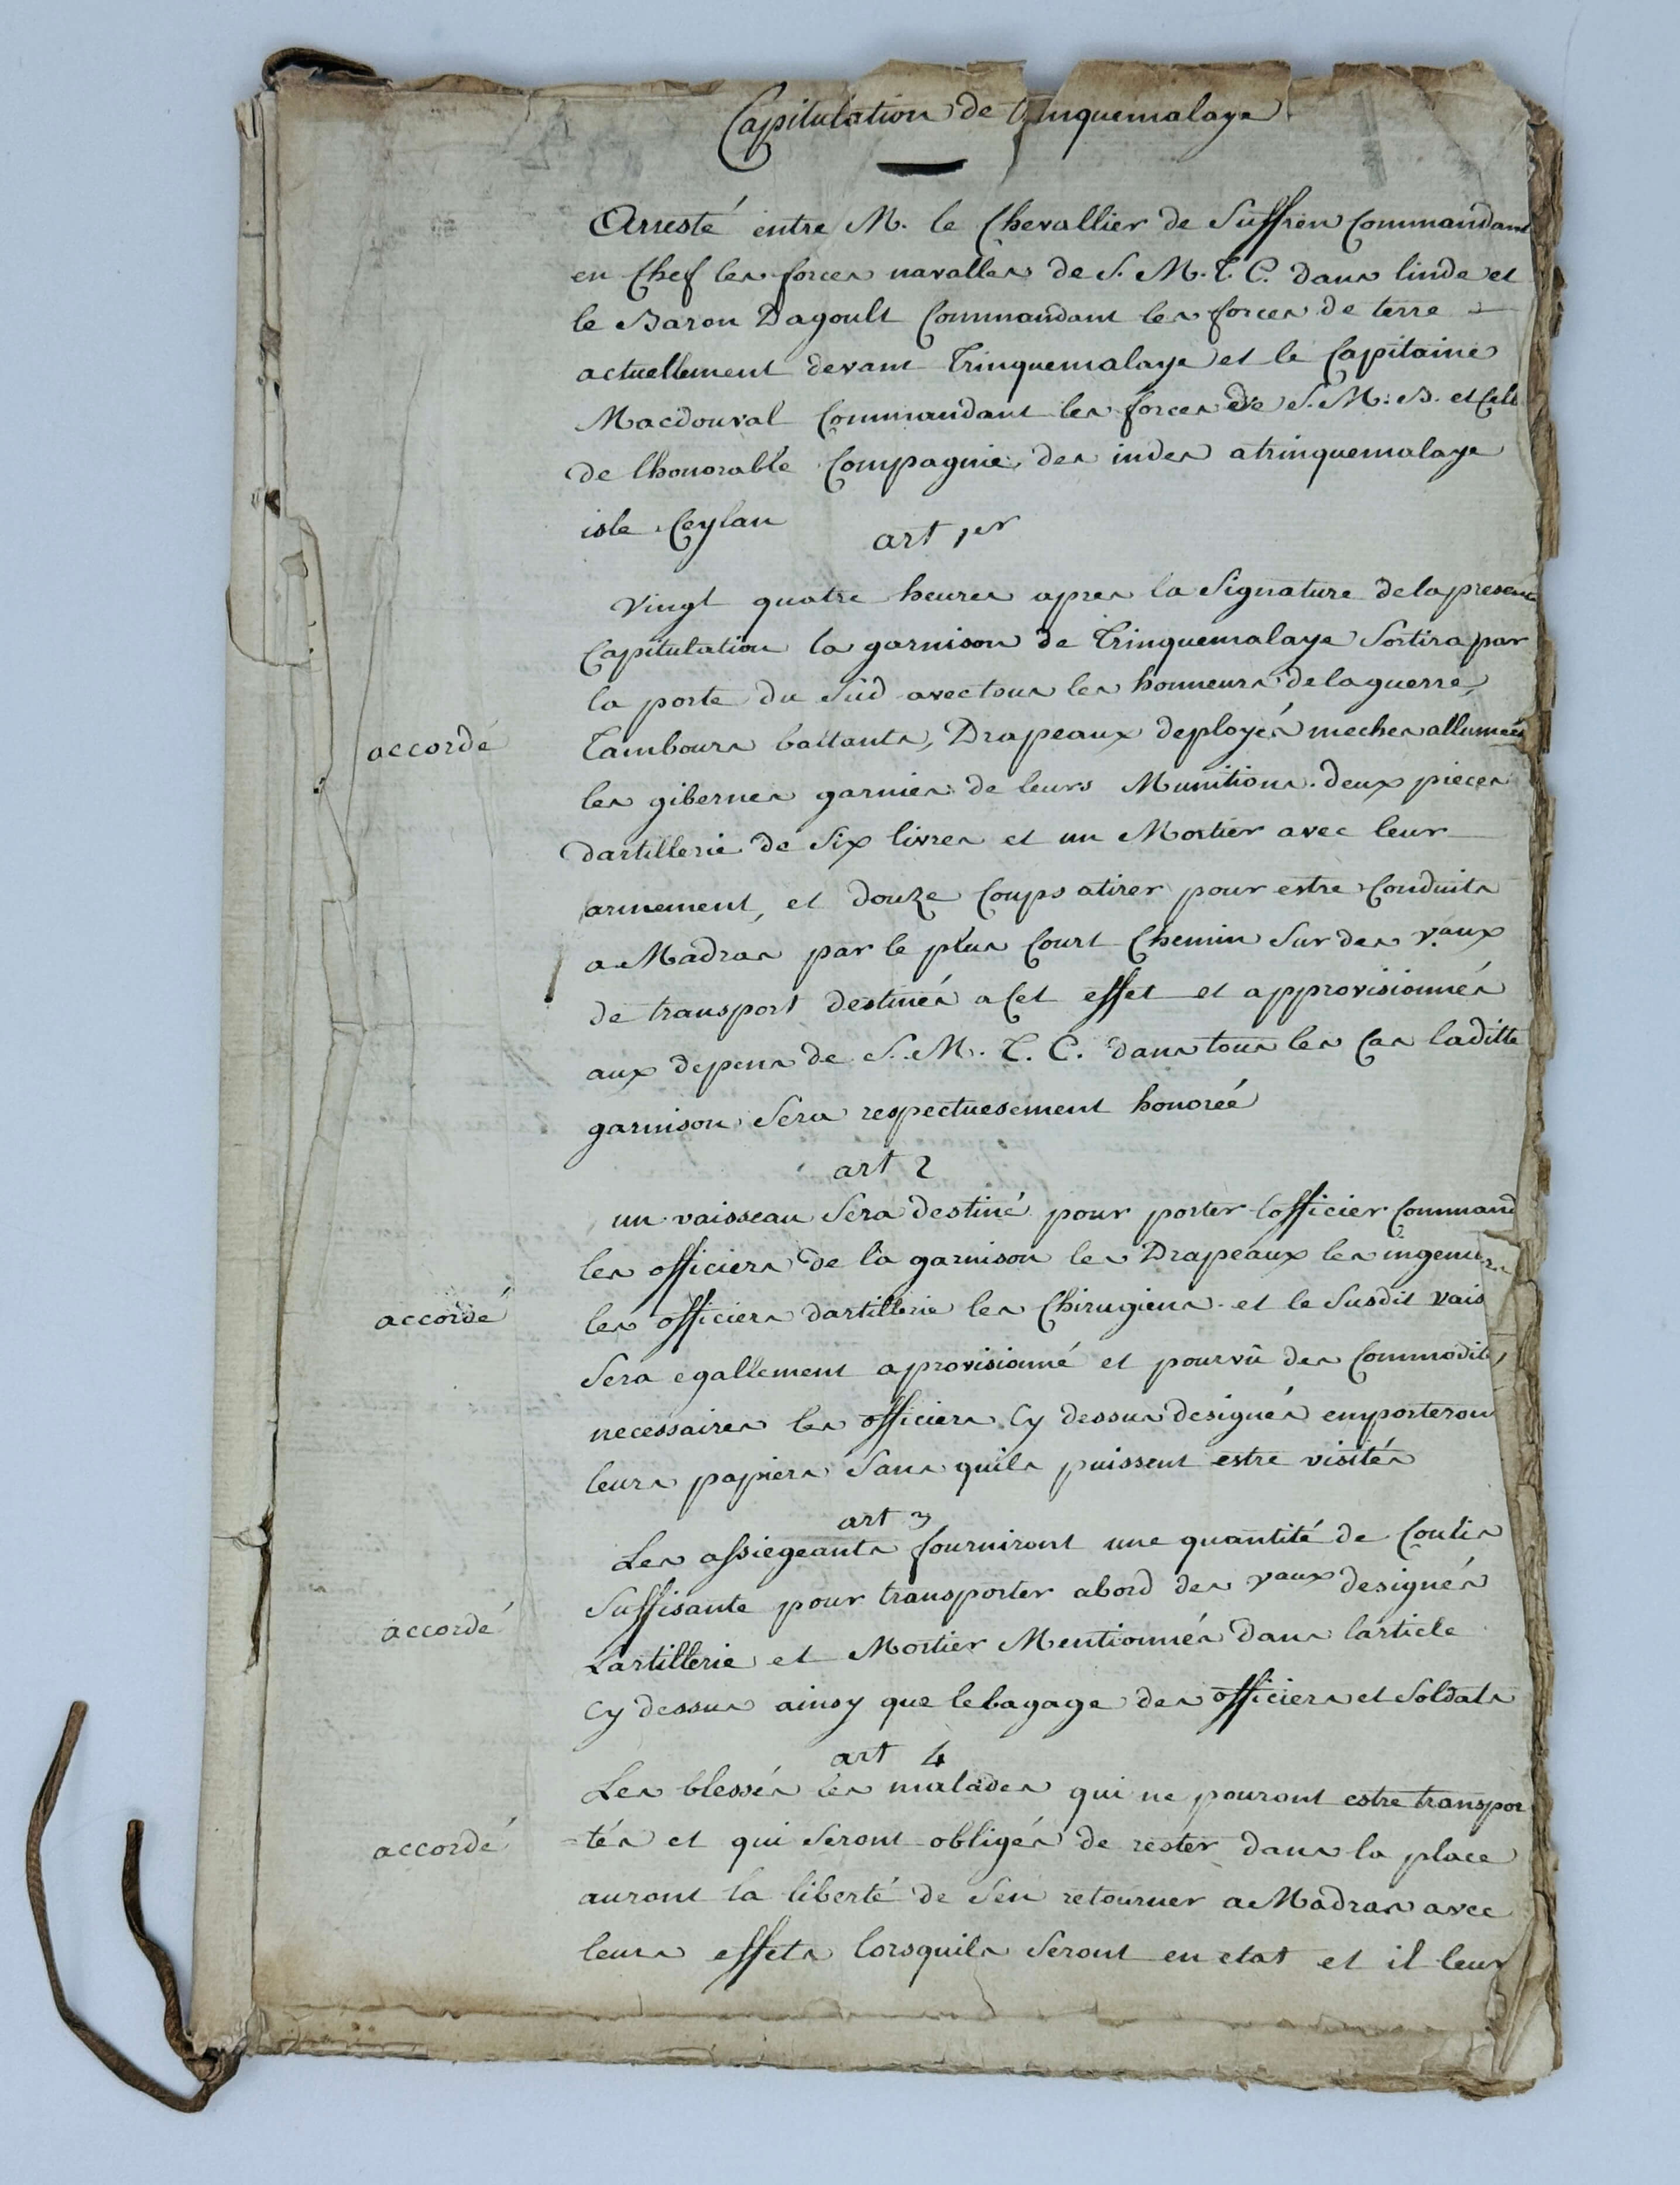 Capitulation de trinquemalaye
Arresté entre M. le Chevallier de Suffren Commandant
en Chef les forces navalles de S. M. T. C. dans linde et
le Baron Dagoult Commandant les forces de terre
actuellement devant Trinquemalaye et le Capitaine
Macdouval Commandant les forces de S. M. B. et Celles
de lhonorable Compagnie des indes atrinquemalaye
isle Ceylan
art 1er
Vingt quatre heures apres la Signature delapresente
Capitulation la garnison de Trinquemalaye Sortira par
la porte du Sud avec tous les honneurs de laguerre,
accordé
Tambours battants, Drapeaux deployés meches allumées
les gibernes garnies de leurs Munitions. deux pieces
dartillerie de Six livres et un Mortier avec leur
armement, et douze Coups atirer pour estre Conduits
a Madras par le plus Court Chemin Sur des v.aux
de transport destinés a Cet effet et approvisionnés
aux depens de S. M. T. C. dans tous les Cas laditte
garnison Sera respectuesement honorée
art 2
un vaisseau Sera destiné pour porter lofficier Command
les officiers de la garnison les Drapeaux les ingenieurs
accordé
les officiers dartillerie les Chirugiens et le Susdit vais
Sera egallement aprovisionné et pourvû des Commodités
necessaires les officiers Cy dessus designés emporteron
leurs papiers Sans quils puissent estre visités
art 3
Les assiegeants fourniront une quantité de Coulis
Suffisante pour transporter abord des vaux designés
accordé
Lartillerie et Mortier Mentionnés dans larticle
Cy dessus ainsy que lebagage des officiers et Soldats
art 4
Les blessés les malades qui ne pouront estre transpor
accordé
-tés et qui Seront obligés de rester dans la place
auront la liberté de Sen retourner a Madras avec
leurs effets lorsquils Seront en etat et il leur